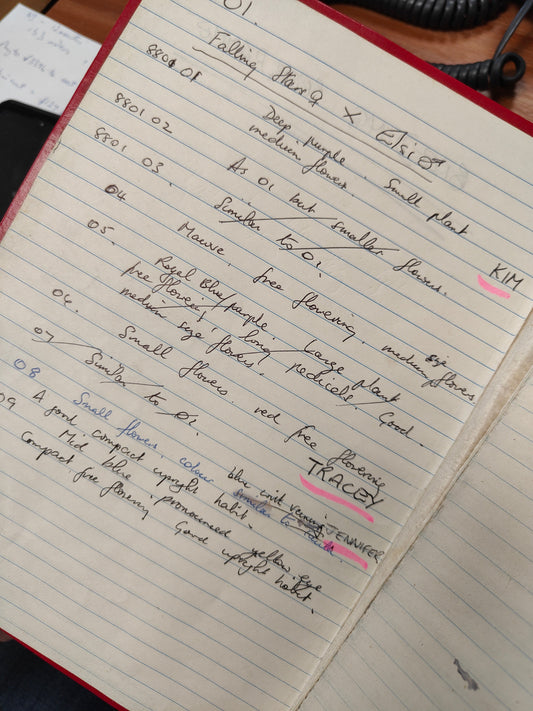 01.
Falling Stars ♀ X Elsie ♂
8801 01 Deep purple. Small plant
medium flower.
8801 02 As 01 but smaller flowers. KIM
8801 03. Similar to 02.
04 Mauve, free flowering, medium size flowers
05. Royal Blue/purple. Large plant
free flower, long pedicels. Good
medium size flowers.
06. Small flowers. red free flowering
07 Similar to 02. TRACEY
08 Small flower, colour similar to
blue with veining JENNIFER
A good compact upright habit.
09 Mid blue, pronounced yellow eye
Compact, free flowering Good upright habit.